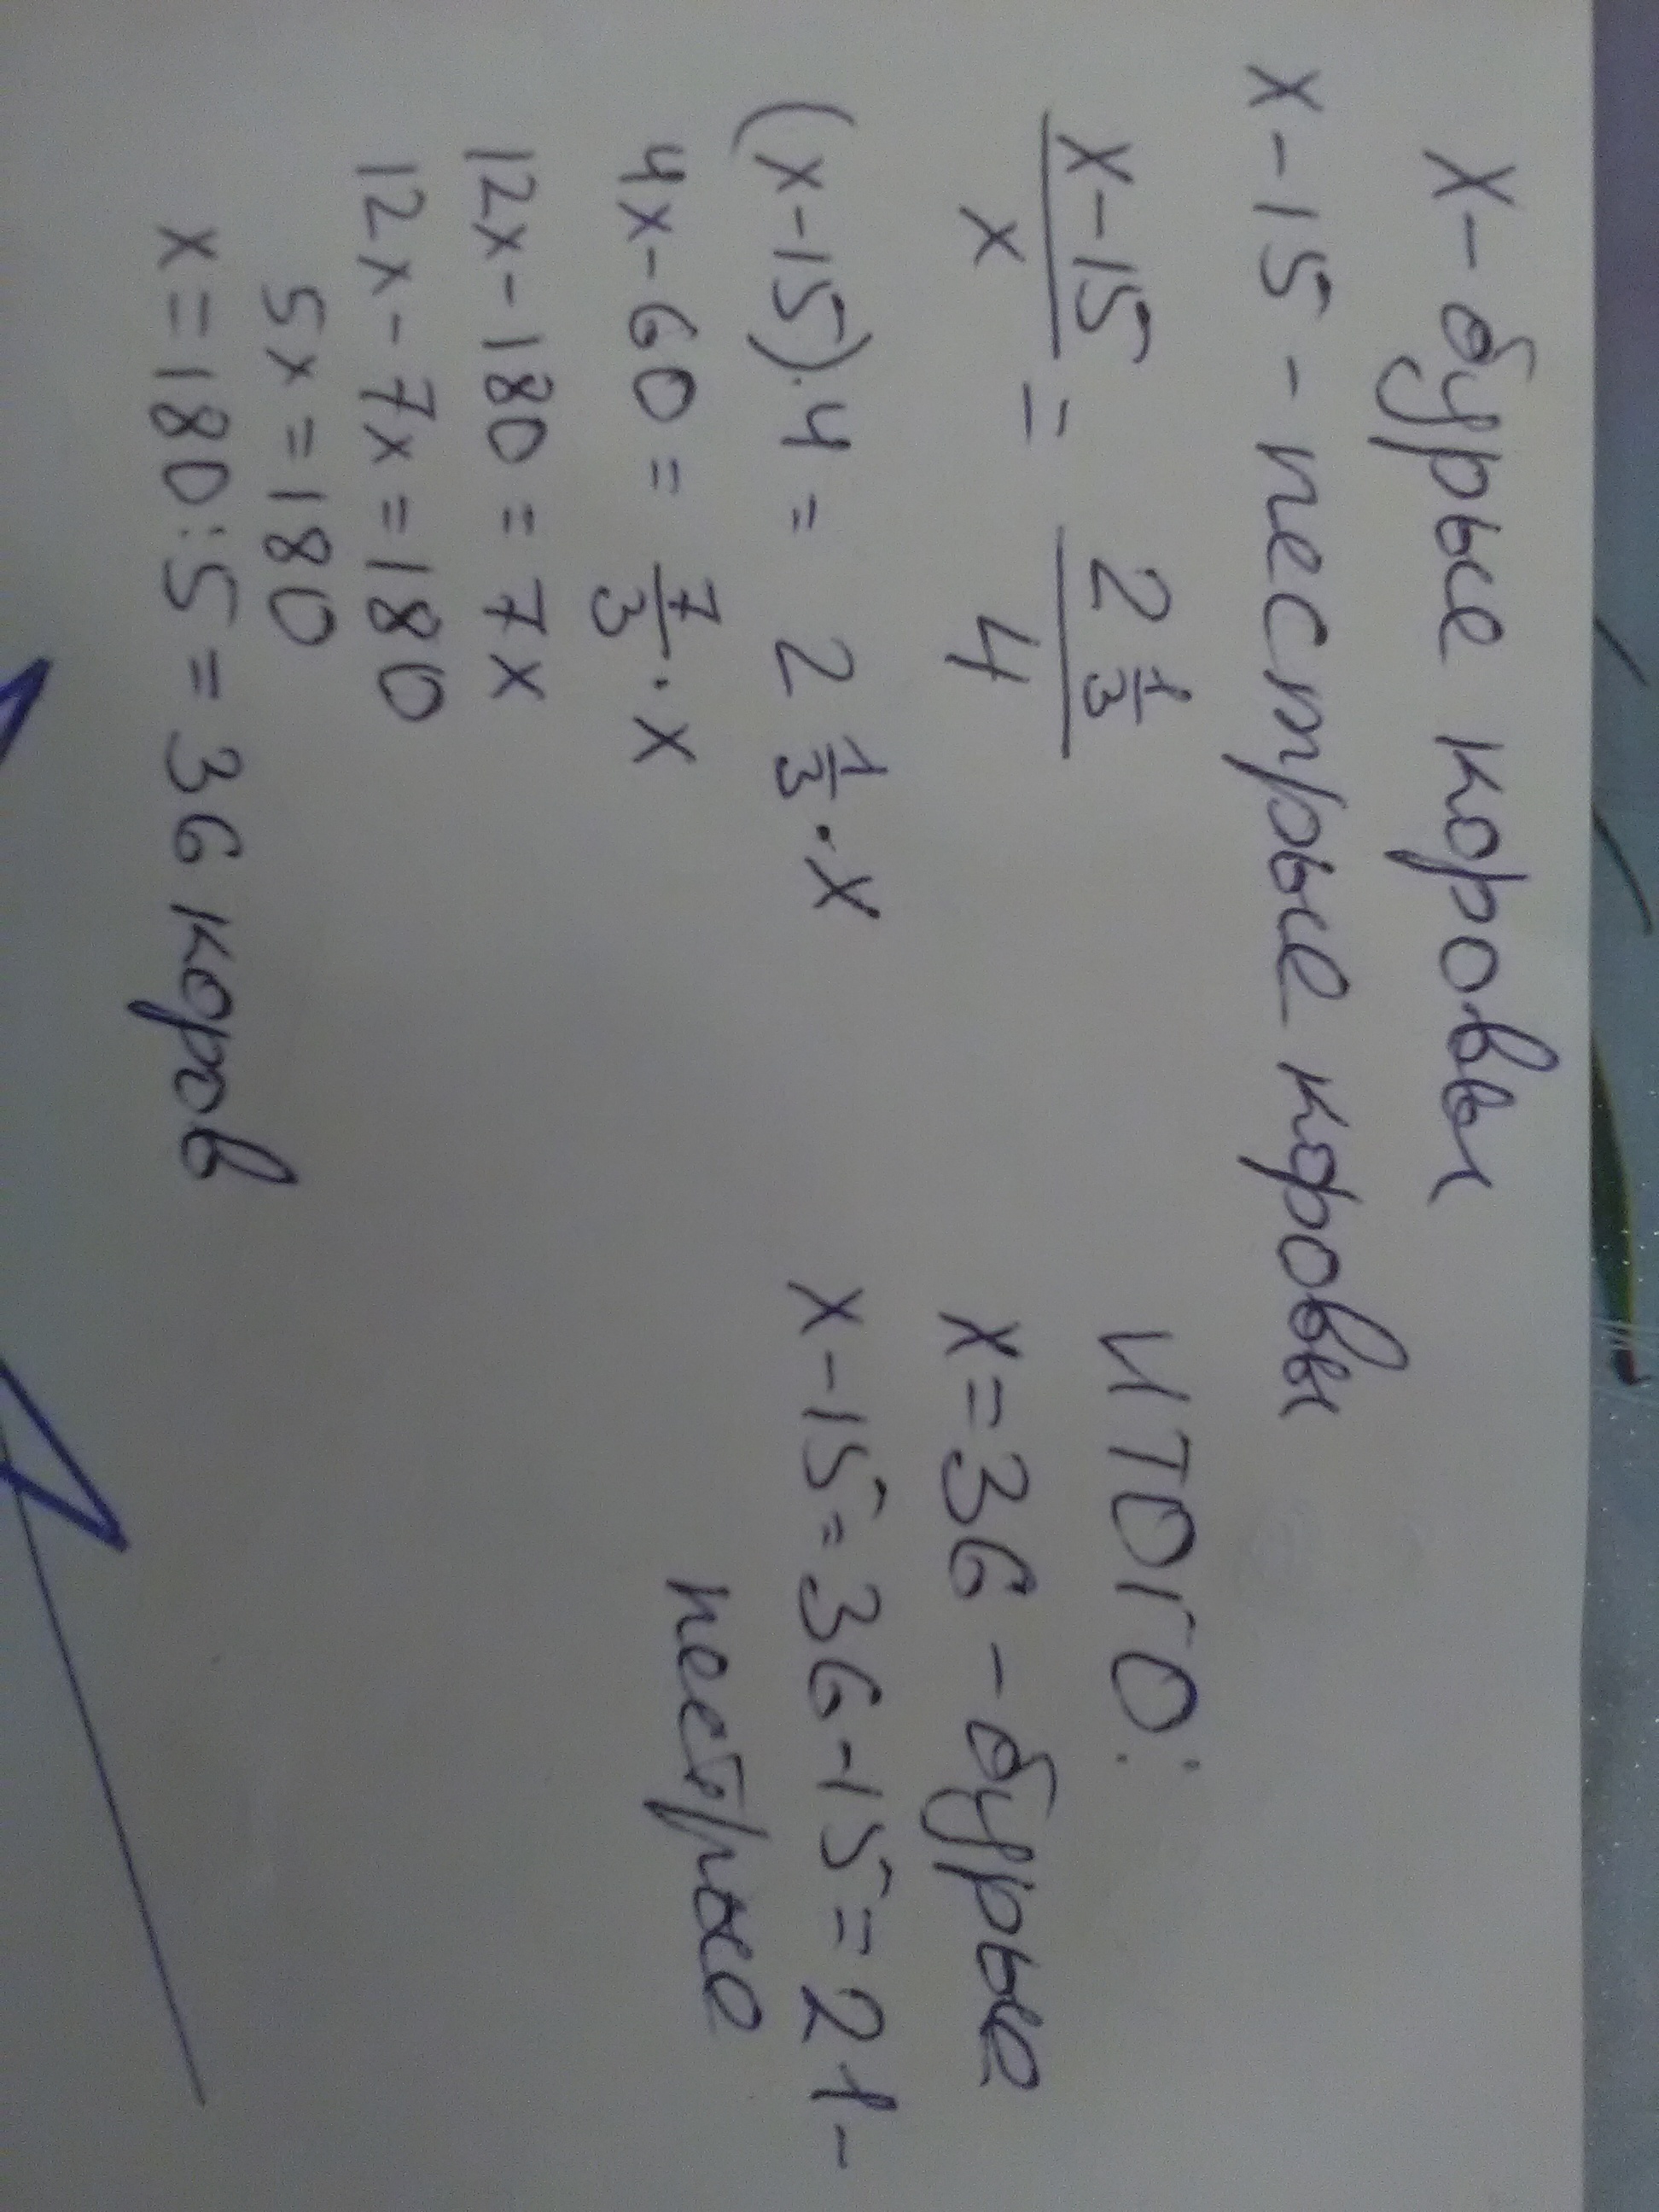 х - бурые коровы
х - 15 - пестрые коровы
(х - 15) / х = (2 1/3) / 4
(х - 15) · 4 = 2 1/3 · х
4х - 60 = 7/3 · х
12х - 180 = 7х
12х - 7х = 180
5х = 180
х = 180 : 5 = 36 коров
ИТОГО:
х = 36 - бурые
х - 15 = 36 - 15 = 21 -
пестрые